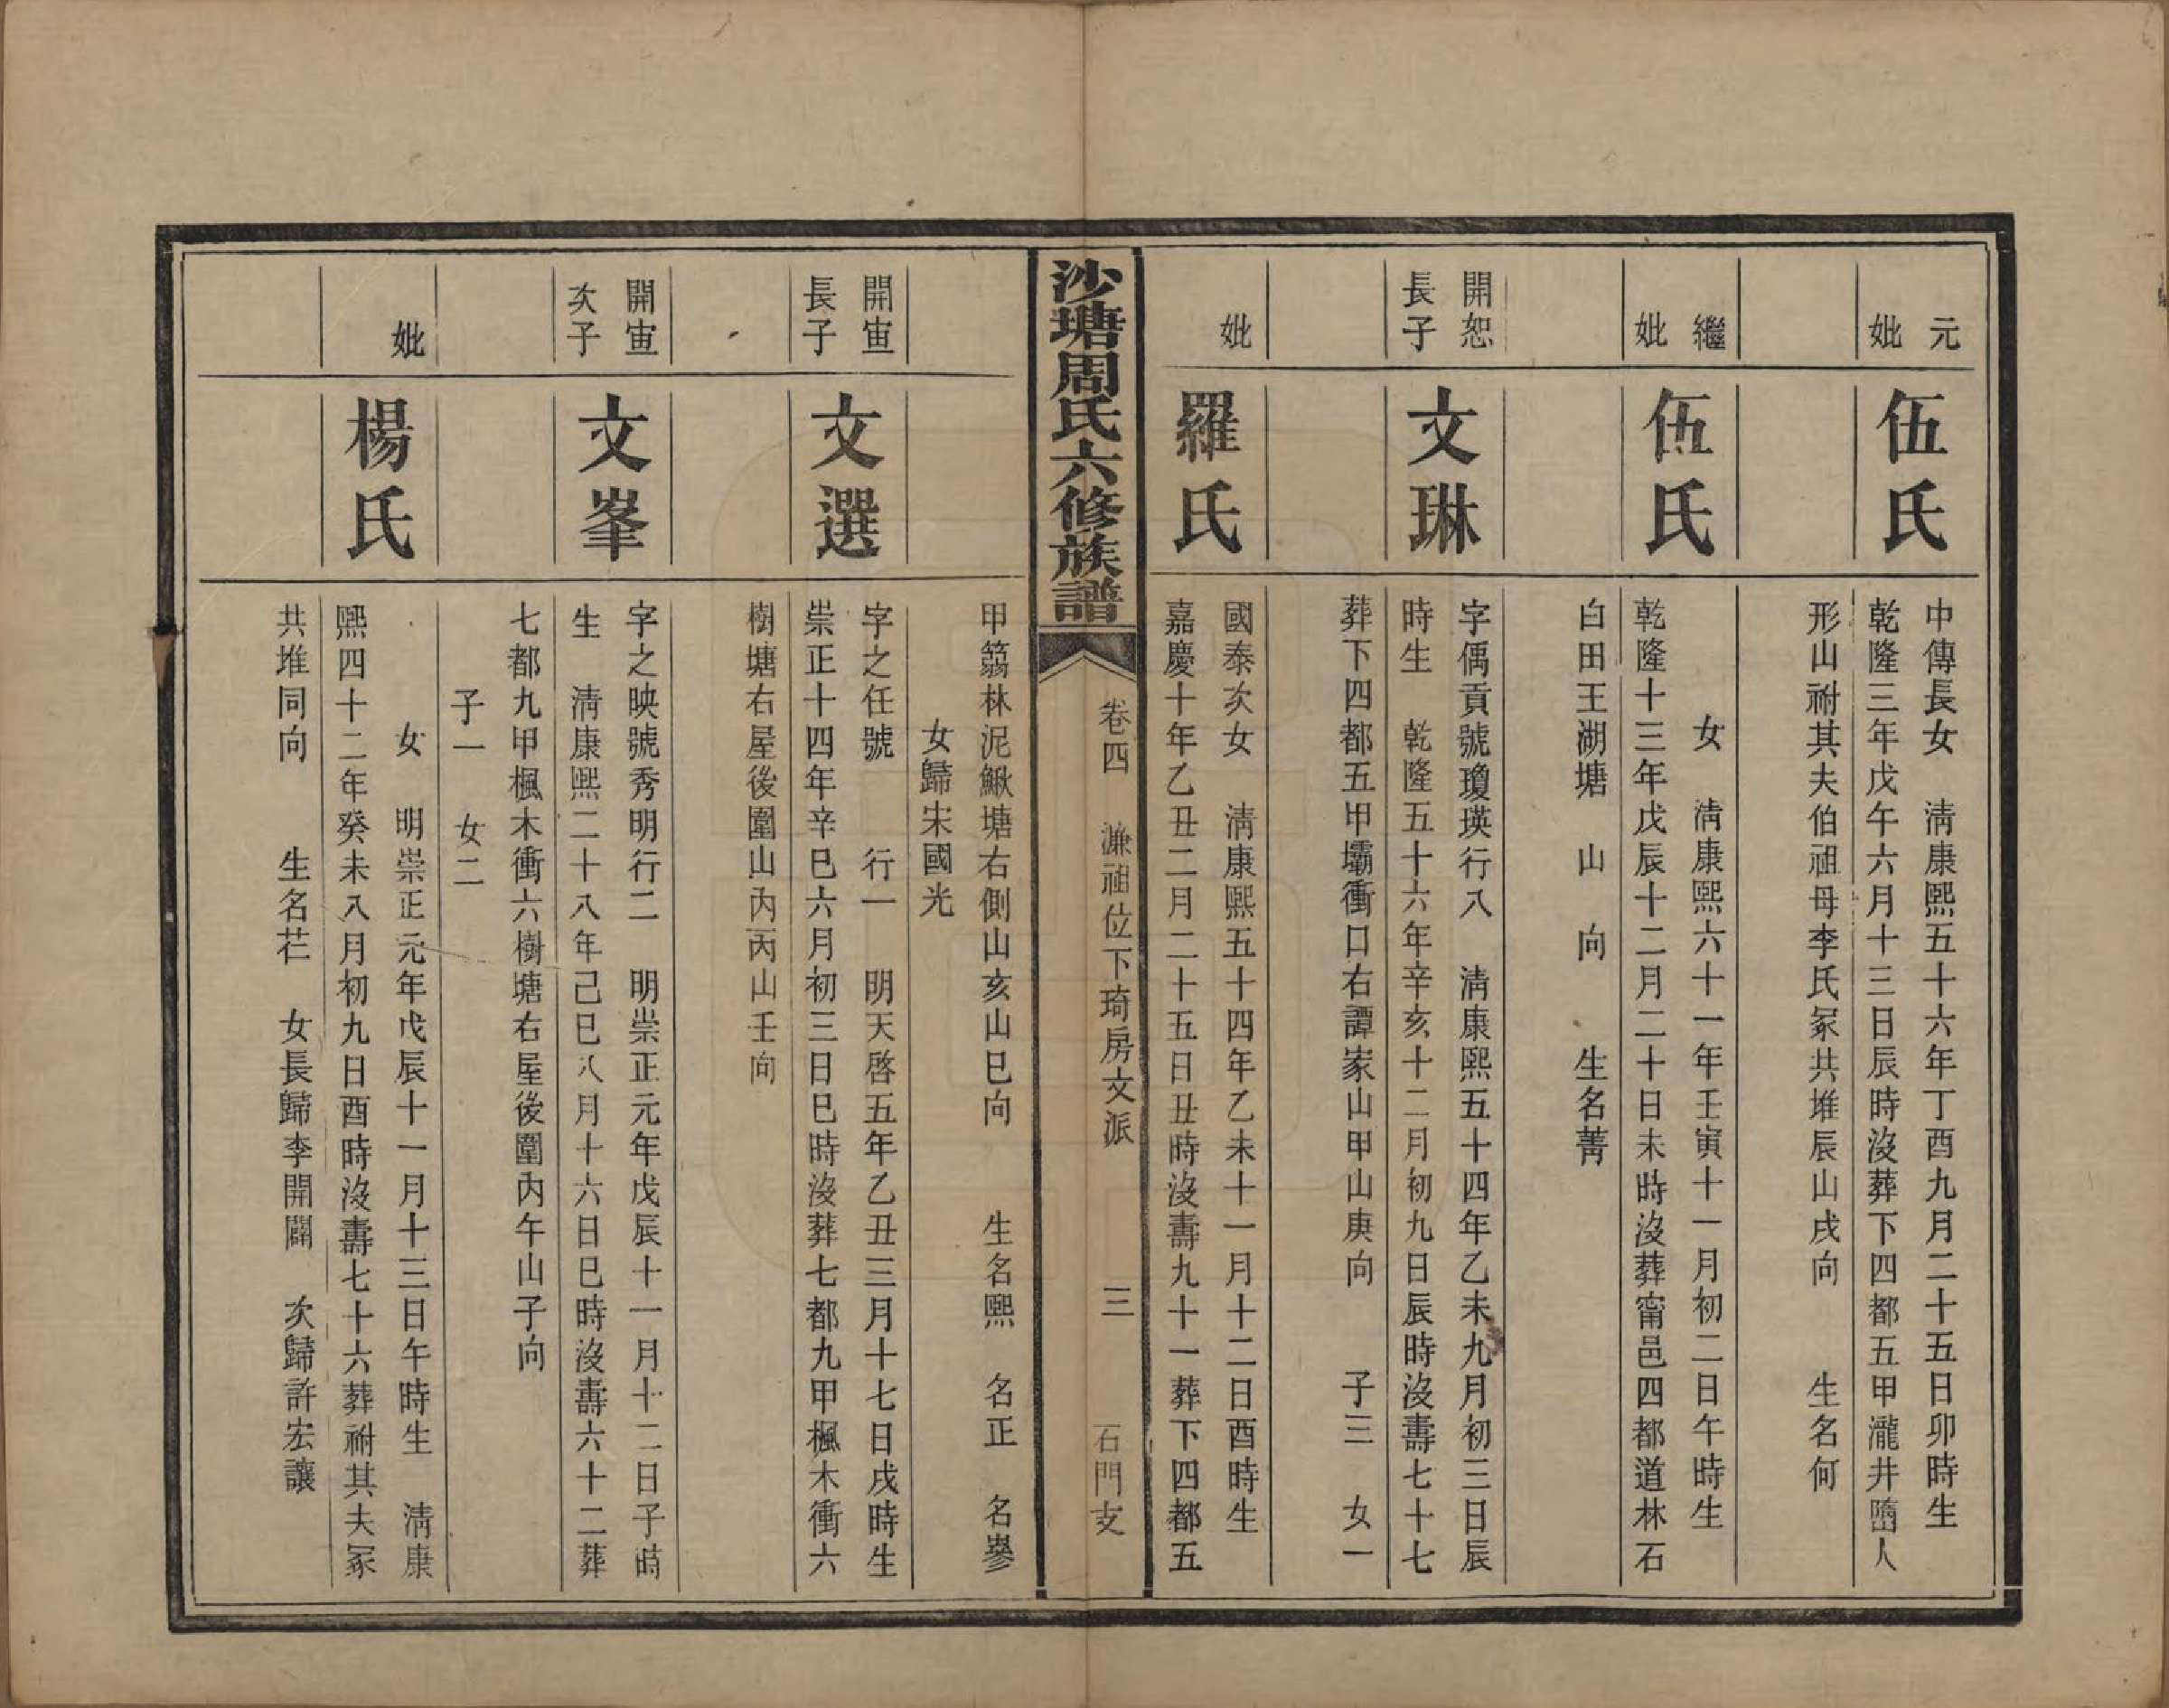 元
妣
伍氏
中傳長女　淸康熙五十六年丁酉九月二十五日卯時生
乾隆三年戊午六月十三日辰時沒葬下四都五甲瀧井墮人
形山祔其夫伯祖母李氏冢共堆辰山戌向　　生名何
繼
妣
伍氏
女　淸康熙六十一年壬寅十一月初二日午時生
乾隆十三年戊辰十二月二十日未時沒葬甯邑四都道林石
白田王湖塘　山　向　　生名菁
開恕
長子
文琳
字偊貢號瓊瑛行八　淸康熙五十四年乙未九月初三日辰
時生　乾隆五十六年辛亥十二月初九日辰時沒壽七十七
葬下四都五甲壩衝口右譚家山甲山庚向　　子三　女一
妣
羅氏
國泰次女　淸康熙五十四年乙未十一月十二日酉時生
嘉慶十年乙丑二月二十五日丑時沒壽九十一葬下四都五
沙塘周氏六修族譜
卷四　濂祖位下琦房文派　　　三　　石門支
甲篛林泥鰍塘右側山亥山巳向　　生名熙　名正　名㟥
女歸宋國光
開宙
長子
文選
字之任號　　行一　明天啓五年乙丑三月十七日戌時生
崇正十四年辛巳六月初三日巳時沒葬七都九甲楓木衝六
樹塘右屋後圍山內丙山壬向
開宙
次子
文峯
字之映號秀明行二　明崇正元年戊辰十一月十二日子時
生　淸康熙二十八年己巳八月十六日巳時沒壽六十二葬
七都九甲楓木衝六樹塘右屋後圍內午山子向
子一　女二
妣
楊氏
女　明崇正元年戊辰十一月十三日午時生　淸康
熙四十二年癸未八月初九日酉時沒壽七十六葬祔其夫冢
共堆同向　　生名芢　女長歸李開闢　次歸許宏讓